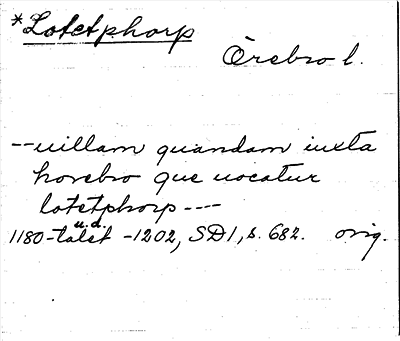 *Lotetphorp
Örebro l.
--uillam quandam iuxta
horebro que uocatur
lotetphorp----
u.d.
1180-talet -1202, SD1, s. 682. orig.